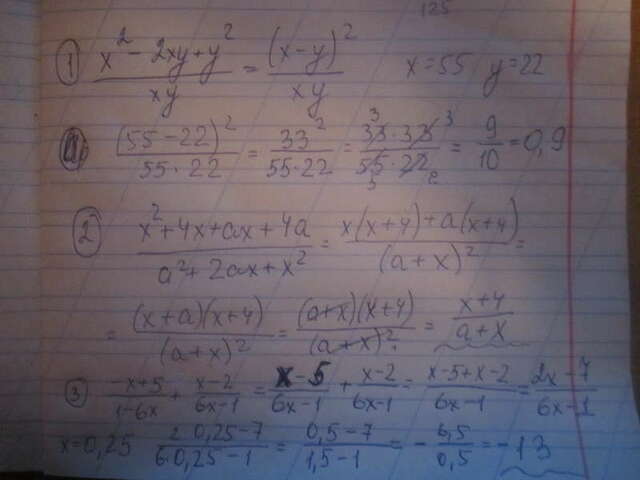 125
1 (x² - 2xy + y²)/(xy) = (x-y)²/(xy) x=55 y=22
(55-22)²/(55·22) = 33²/(55·22) = (33·33)/(55·22) 3 3 5 2 = 9/10 = 0,9
2 (x²+4x+ax+4a)/(a²+2ax+x²) = (x(x+4)+a(x+4))/(a+x)² =
= (x+a)(x+4)/(a+x)² = (a+x)(x+4)/(a+x)² = (x+4)/(a+x)
3 (-x+5)/(1-6x) + (x-2)/(6x-1) = (x-5)/(6x-1) + (x-2)/(6x-1) = (x-5+x-2)/(6x-1) = (2x-7)/(6x-1)
x=0,25 (2·0,25-7)/(6·0,25-1) = (0,5-7)/(1,5-1) = -6,5/0,5 = -13